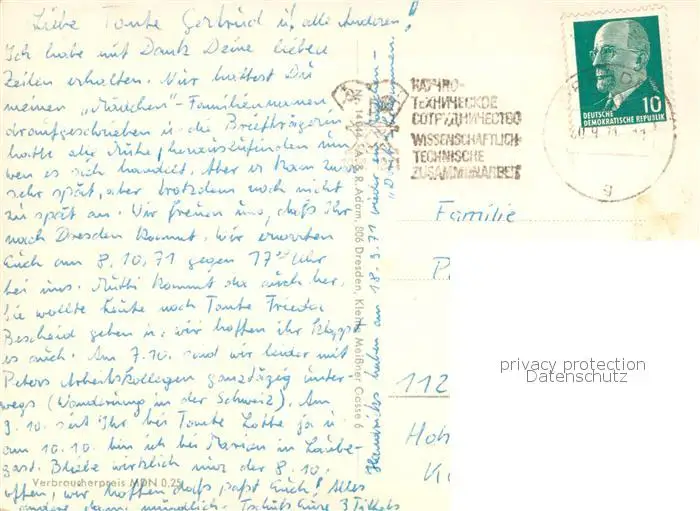 Liebe Tante Gertrud u. alle Anderen!
Ich habe mit Dank Deine lieben
Zeilen erhalten. Nur hattest Du
meinen „Mädchen"-Familiennamen,
draufgeschrieben u. die Briefträgerin
hatte alle Mühe herauszufinden um
wen es sich handelt. Aber er kam zwar
sehr spät, aber trotzdem noch nicht
zu spät an. Wir freuen uns, daß Ihr
nach Dresden kommt. Wir erwarten
Euch am 8.10.71 gegen 17⁰⁰ Uhr
bei uns. Mutti kommt da auch her.
Sie wollte heute noch Tante Frieda
Bescheid geben u. wir hoffen ihr klappt
es auch. Am 7.10. sind wir leider mit
Peters Arbeitskollegen ganztägig unter-
wegs (Wanderung in der Schweiz). Am
9.10. seid Ihr bei Tante Lotte ja u.
am 10.10. bin ich bei Marion in Laube-
gast. Bliebe wirklich nur der 8.10.
offen, wir hoffen daß paßt Euch! Alles
andere dann mündlich. Tschüß Eure 3
Verbraucherpreis MDN 0,25
haben am 18.9.71 wieder ein
A. & R. Adam, 806 Dresden, Klente Meißner Gasse 6
НАУЧНО-
ТЕХНИЧЕСКОЕ
СОТРУДНИЧЕСТВО
WISSENSCHAFTLICH-
TECHNISCHE
ZUSAMMENARBEIT
10
DEUTSCHE
DEMOKRATISCHE REPUBLIK
20.9.71
g
Familie
P
privacy protection
Datenschutz
112
Hoh